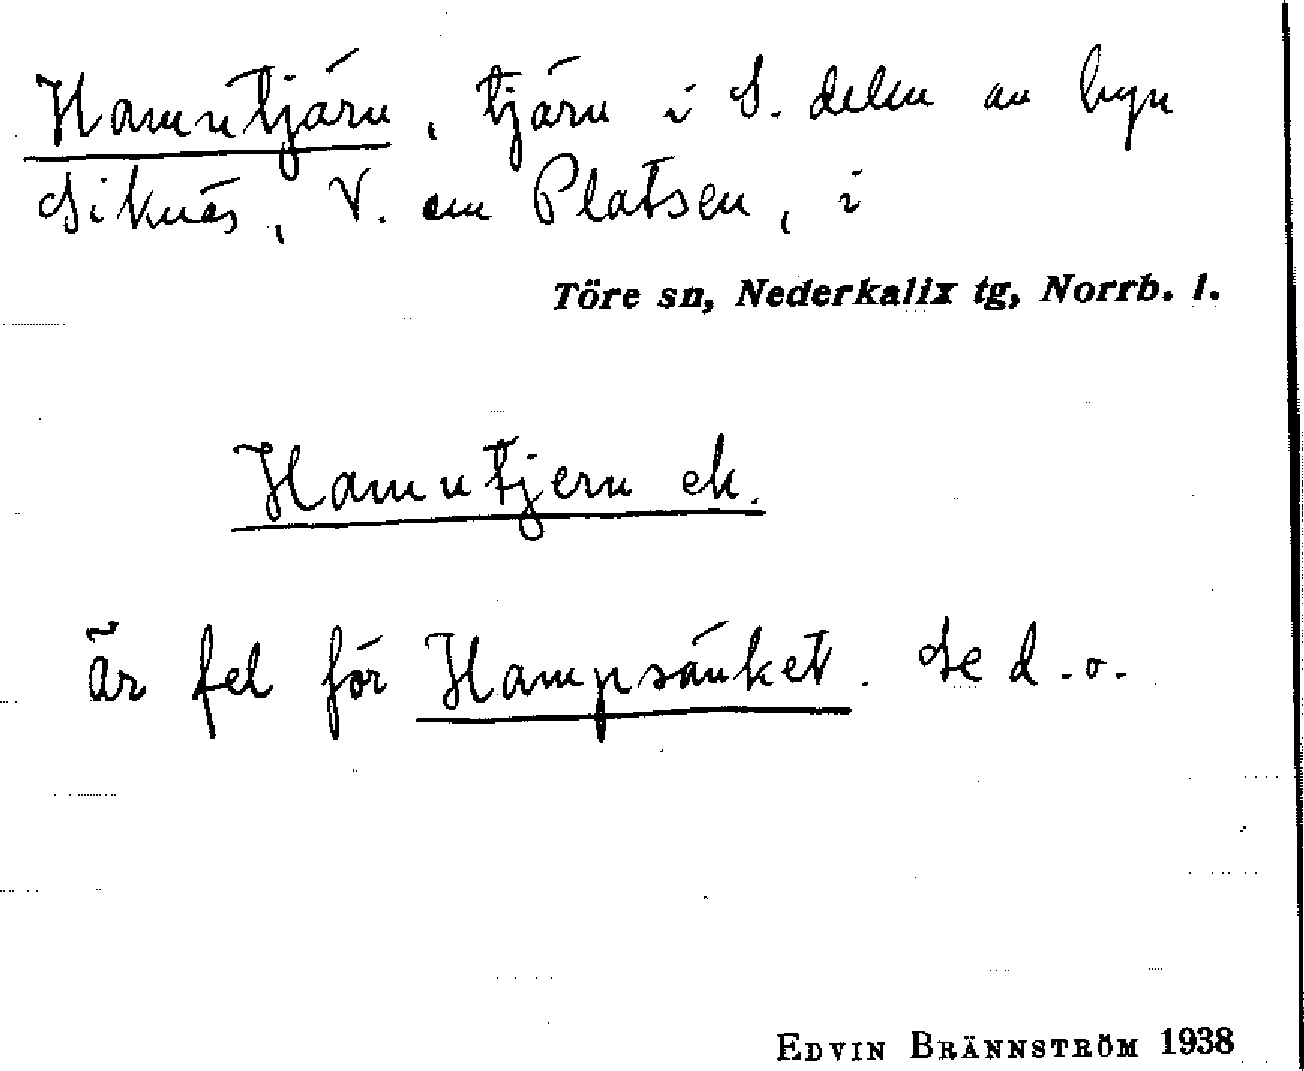 Hamntjärn, tjärn i S. delen av byn
Siknäs, V. om Platsen, i
Töre sn, Nederkalix tg, Norrb. l.
Hamntjern ek.
är fel för Hampsänket. Se d. o.
EDVIN BRÄNNSTRÖM 1938